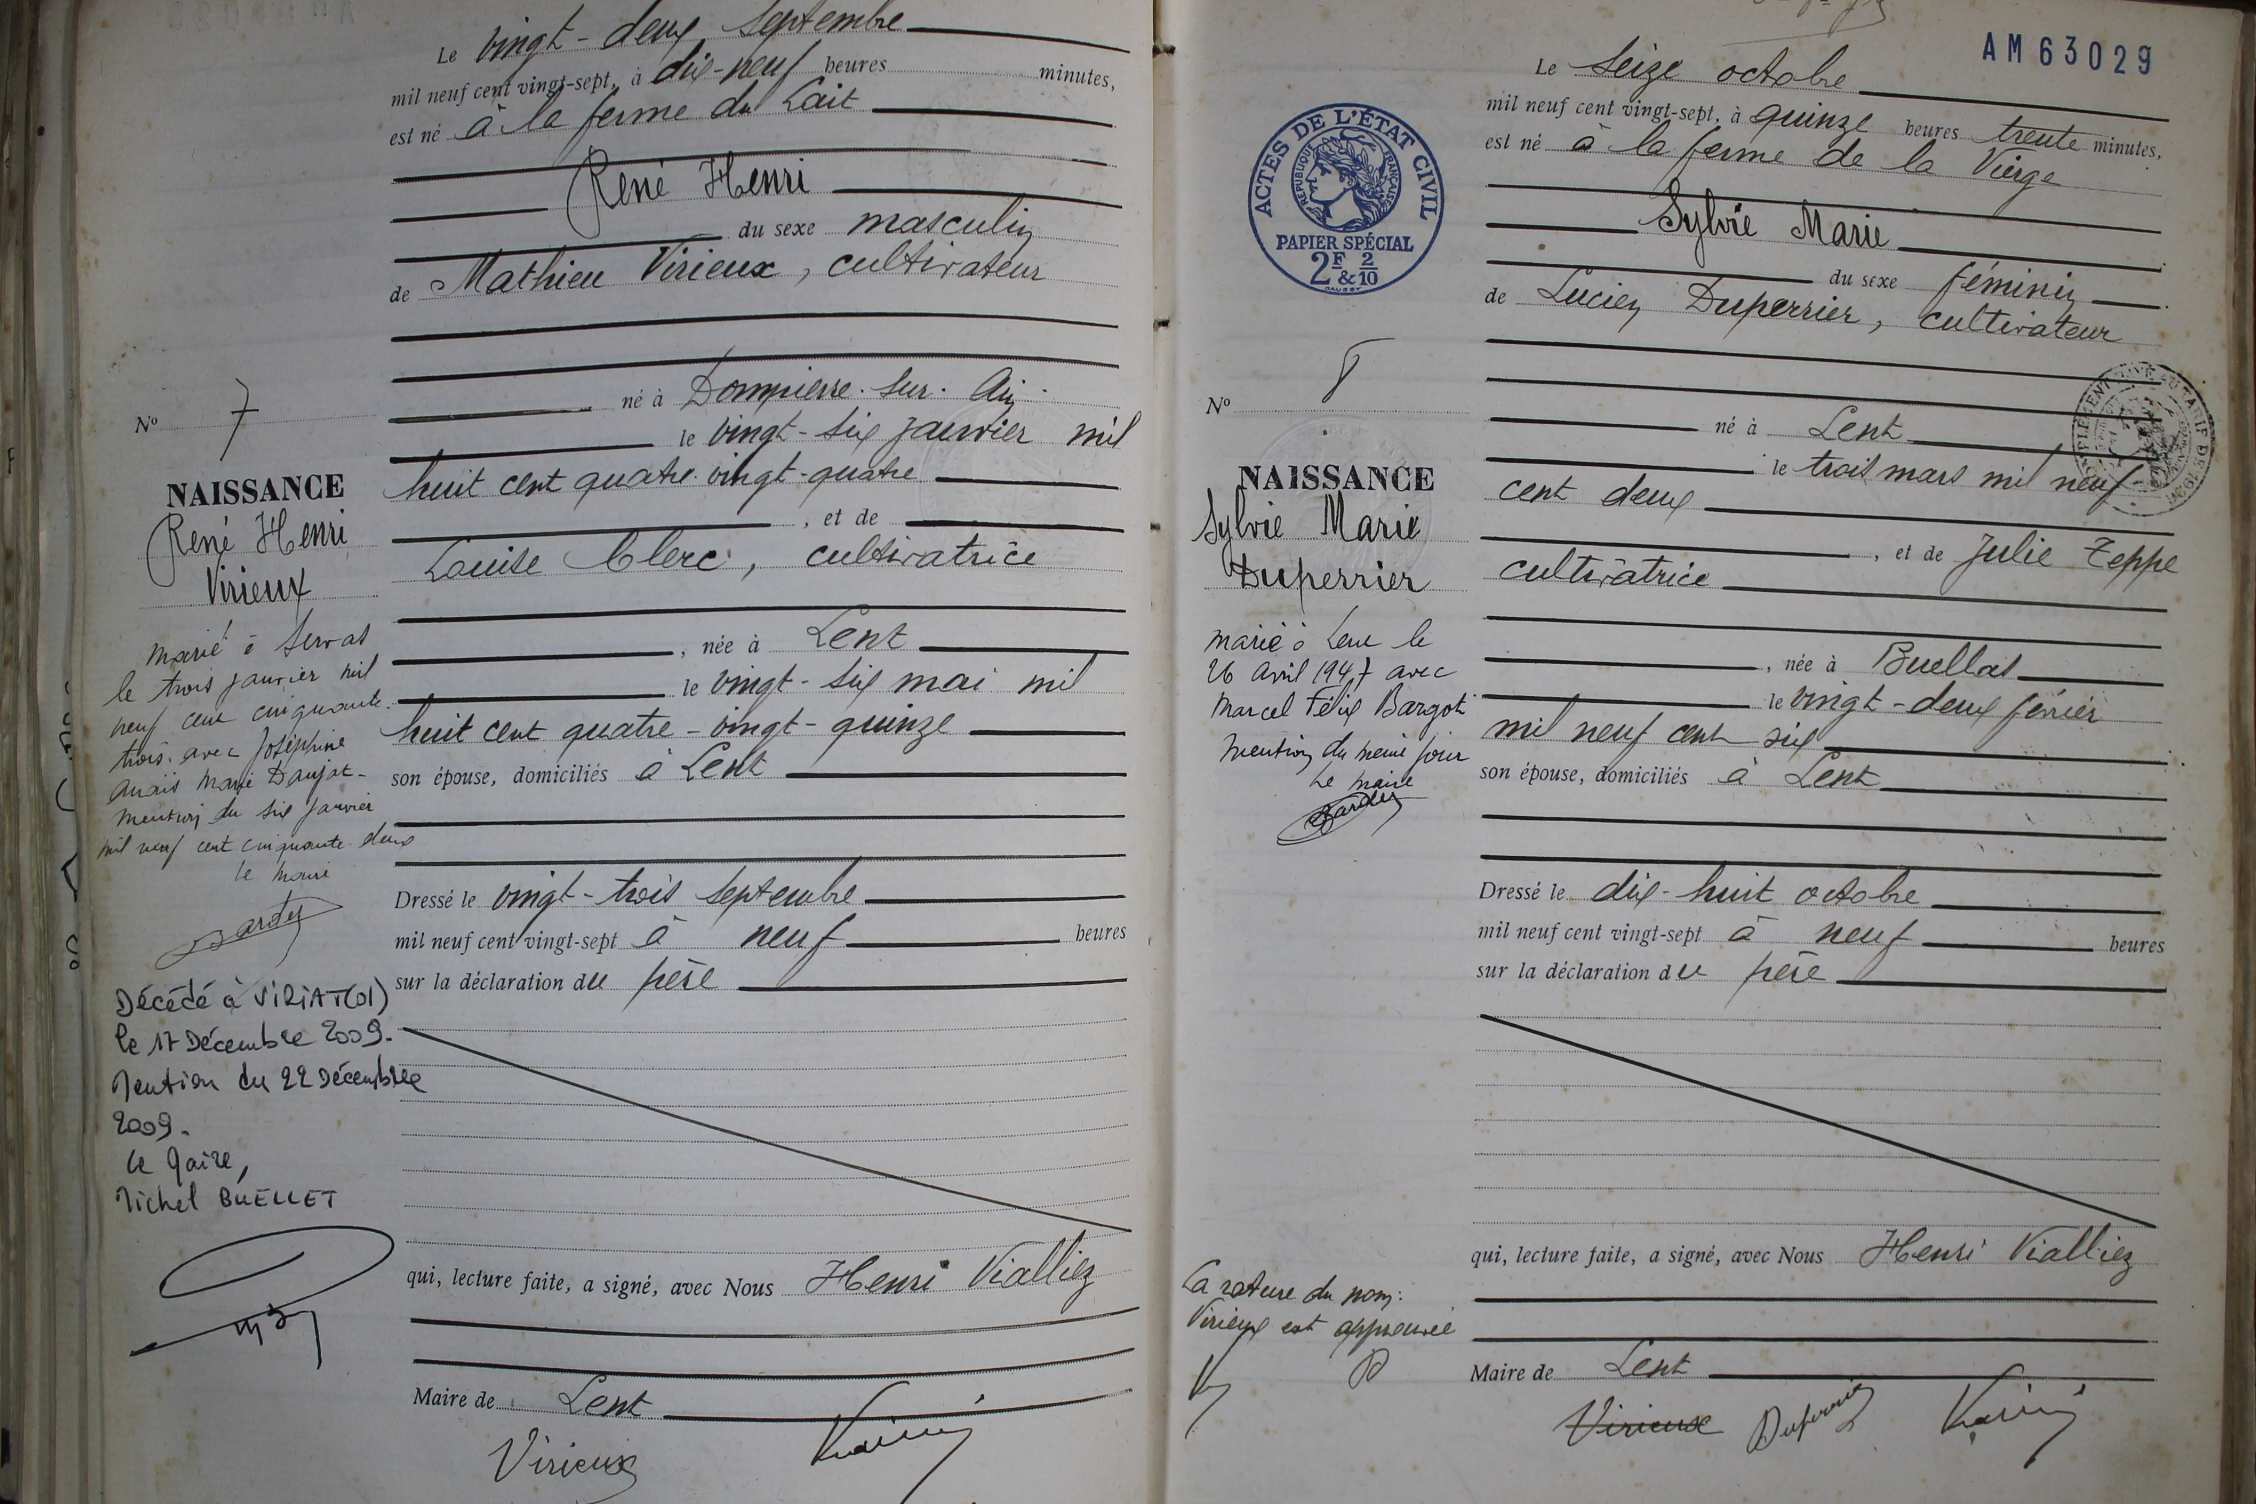 Le vingt-deux Septembre
mil neuf cent vingt-sept, à dix-neuf heures minutes,
est né à la ferme du Lait
René Henri
du sexe masculin
de Mathieu Virieux, cultivateur
né à Dompierre-sur-Ain
le vingt-six Janvier mil
huit cent quatre-vingt-quatre
, et de
Louise Clerc, cultivatrice
, née à Lent
le vingt-six mai mil
huit cent quatre-vingt-quinze
son épouse, domiciliés à Lent
Dressé le vingt-trois Septembre
mil neuf cent vingt-sept à neuf heures
sur la déclaration du père
qui, lecture faite, a signé, avec Nous Henri Viallież
Maire de Lent
Virieux
No 7
NAISSANCE
René Henri
Virieux
Marié à Servas
le trois janvier mil
neuf cent cinquante
trois avec Joséphine
Anaïs Marie Daujat-
Mention du six janvier
mil neuf cent cinquante deux
le Maire
Bardey
Décédé à VIRIAT(01)
le 17 Décembre 2009.
Mention du 22 Décembre
2009.
Le Maire,
Michel BUELLET
AM63029
Le Seize octobre
mil neuf cent vingt-sept, à quinze heures trente minutes,
est né à la ferme de la Vierge
Sylvie Marie
du sexe féminin
de Lucien Duperrier, cultivateur
né à Lent
le trois mars mil neuf
cent deux
, et de Julie Teppe
cultivatrice
, née à Buellas
le vingt-deux février
mil neuf cent six
son épouse, domiciliés à Lent
Dressé le dix-huit octobre
mil neuf cent vingt-sept à neuf heures
sur la déclaration du père
qui, lecture faite, a signé, avec Nous Henri Viallież
Maire de Lent
Virieux Duperrier
ACTES DE L'ÉTAT CIVIL
RÉPUBLIQUE FRANÇAISE
PAPIER SPÉCIAL
2F & 2/10
No 8
NAISSANCE
Sylvie Marie
Duperrier
Mariée à Lent le
26 avril 1947 avec
Marcel Félix Bargot
Mention du même jour
Le Maire
Bardey
La rature du nom:
Virieux est approuvée